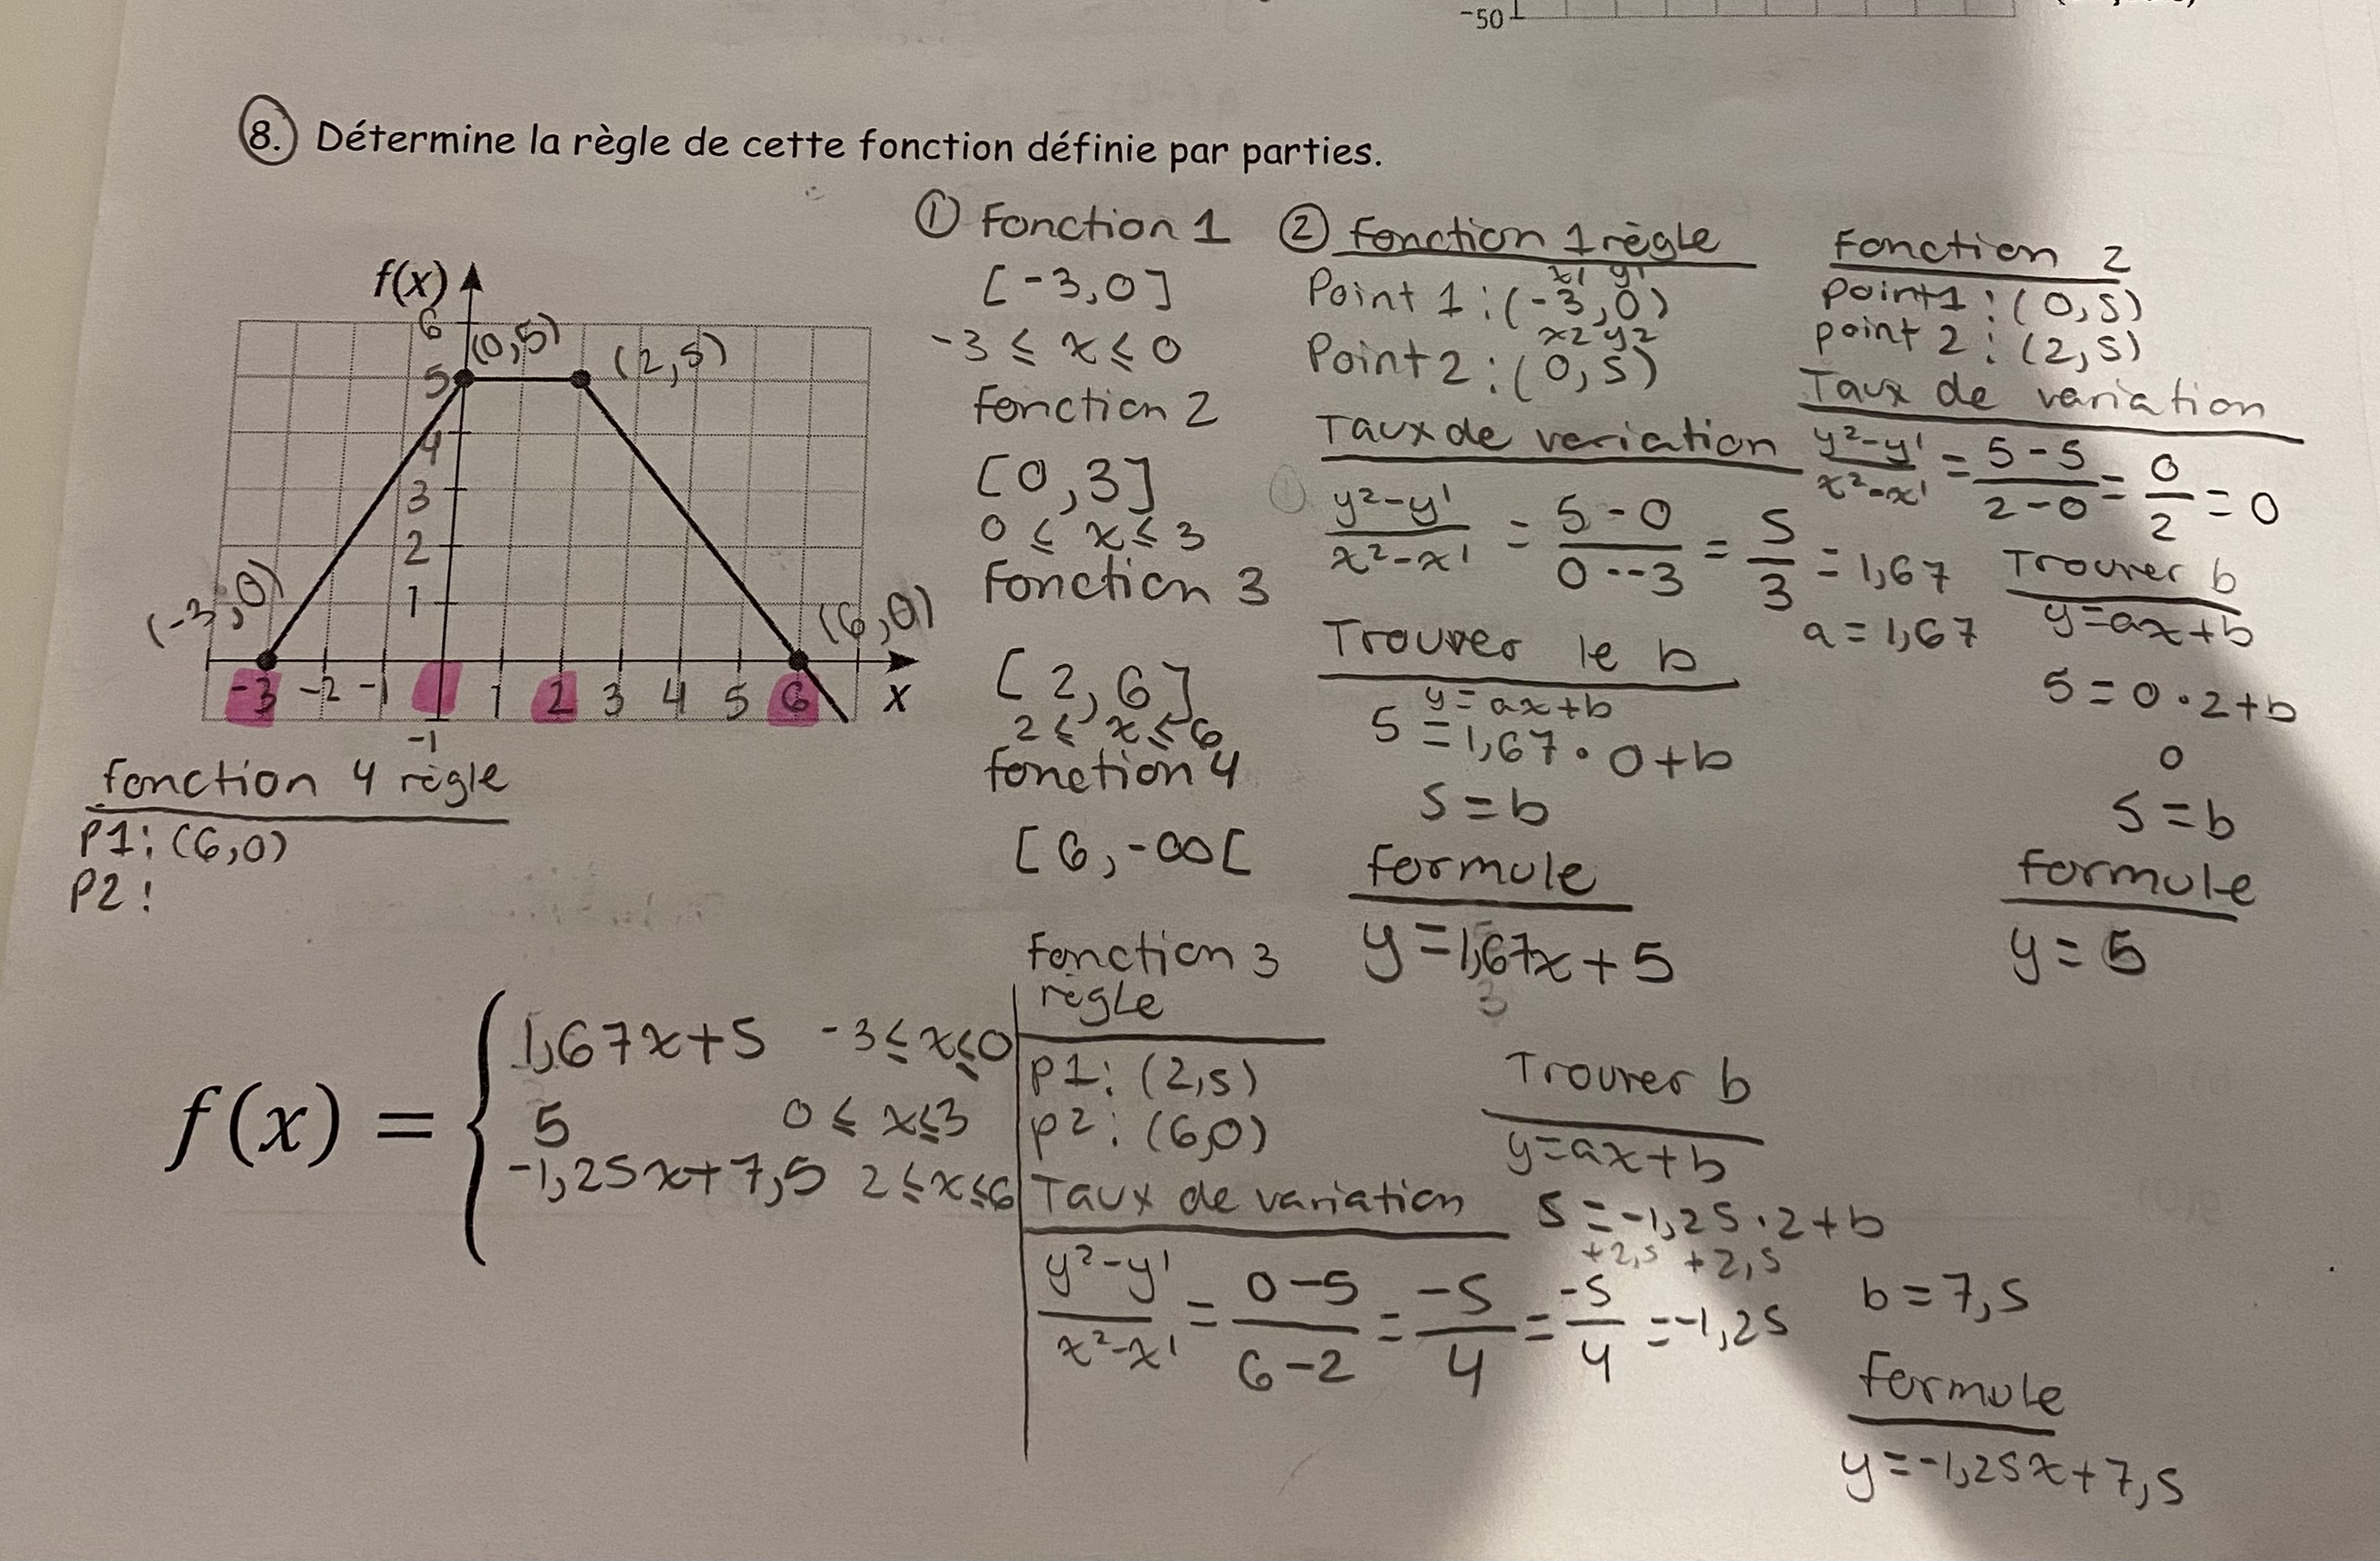 -50
8. Détermine la règle de cette fonction définie par parties.
f(x)
6
5
4
3
2
1
-3 -2 -1 1 2 3 4 5 6 x
-1
(0,5)
(2,5)
(-3,0)
(6,0)
fonction 4 règle
P1: (6,0)
P2:
① Fonction 1
[-3,0]
-3 ≤ x ≤ 0
Fonction 2
[0,3]
0 ≤ x ≤ 3
Fonction 3
[2,6]
2 ≤ x ≤ 6
fonction 4
[6,-∞[
② fonction 1 règle
x1 y1
Point 1: (-3,0)
x2 y2
Point 2: (0,5)
Taux de variation
y2-y1/x2-x1 = 5-0/0--3 = 5/3 = 1,67
a = 1,67
Trouver le b
y=ax+b
5 = 1,67 · 0+b
5 = b
formule
y = 1,67x + 5
Fonction 2
point 1: (0,5)
point 2: (2,5)
Taux de variation
y2-y1/x2-x1 = 5-5/2-0 = 0/2 = 0
Trouver b
y=ax+b
5 = 0 · 2+b
0
5 = b
formule
y = 5
fonction 3
règle
P1: (2,5)
P2: (6,0)
Taux de variation
y2-y1/x2-x1 = 0-5/6-2 = -5/4 = -5/4 = -1,25
Trouver b
y=ax+b
5 = -1,25 · 2 + b
+2,5 +2,5
b = 7,5
formule
y = -1,25x + 7,5
f(x) = {
1,67x+5 -3 ≤ x ≤ 0
5 0 ≤ x ≤ 3
-1,25x+7,5 2 ≤ x ≤ 6